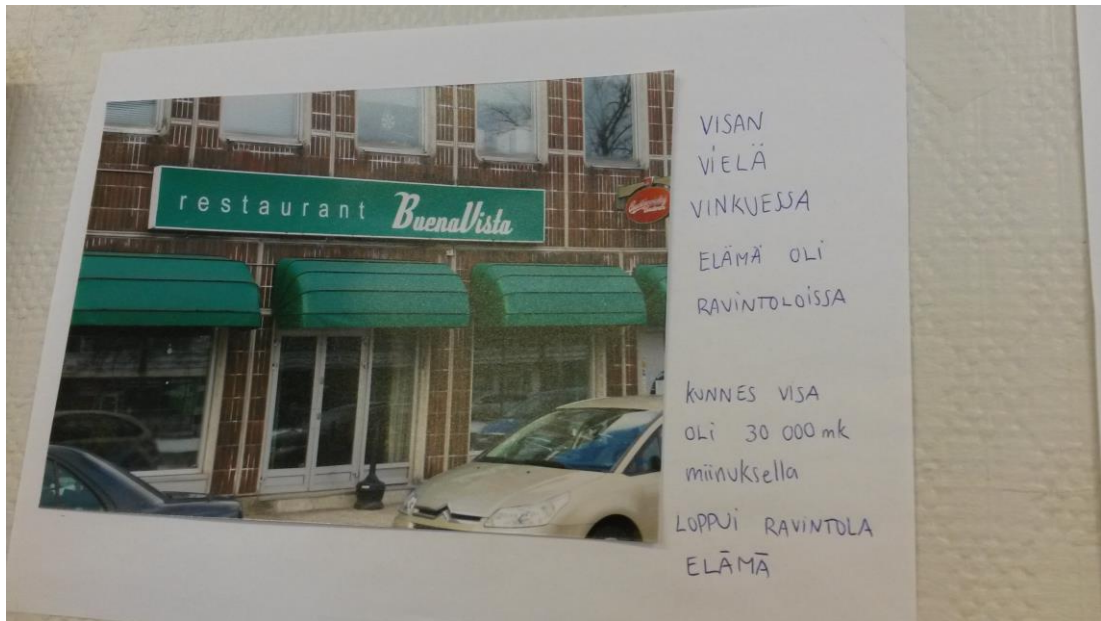 restaurant BuenaVista
VISAN
VIELÄ
VINKUESSA
ELÄMÄ OLI
RAVINTOLOISSA
KUNNES VISA
OLI 30 000 mk
miinuksella
LOPPUI RAVINTOLA
ELÄMÄ